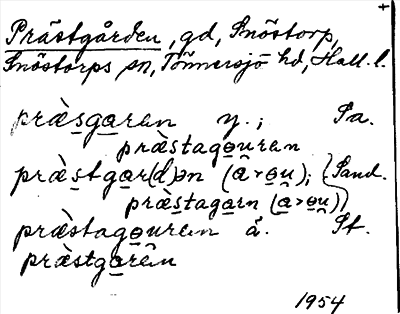 Prästgården, gd, Snöstorp,
Snöstorps sn, Tönnersjö hd, Hall. l.
præ̀sga̱ran y.; Sa.
præ̀stago̱uran
præ̀s̱tga̱r(d)ən (â̱ > o̱u); } Sand.
præ̀s̱taga̱rn (â̱ > o̱u̱)
præ̀stago̱uran ä. St.
præ̀stga̱rən
1954